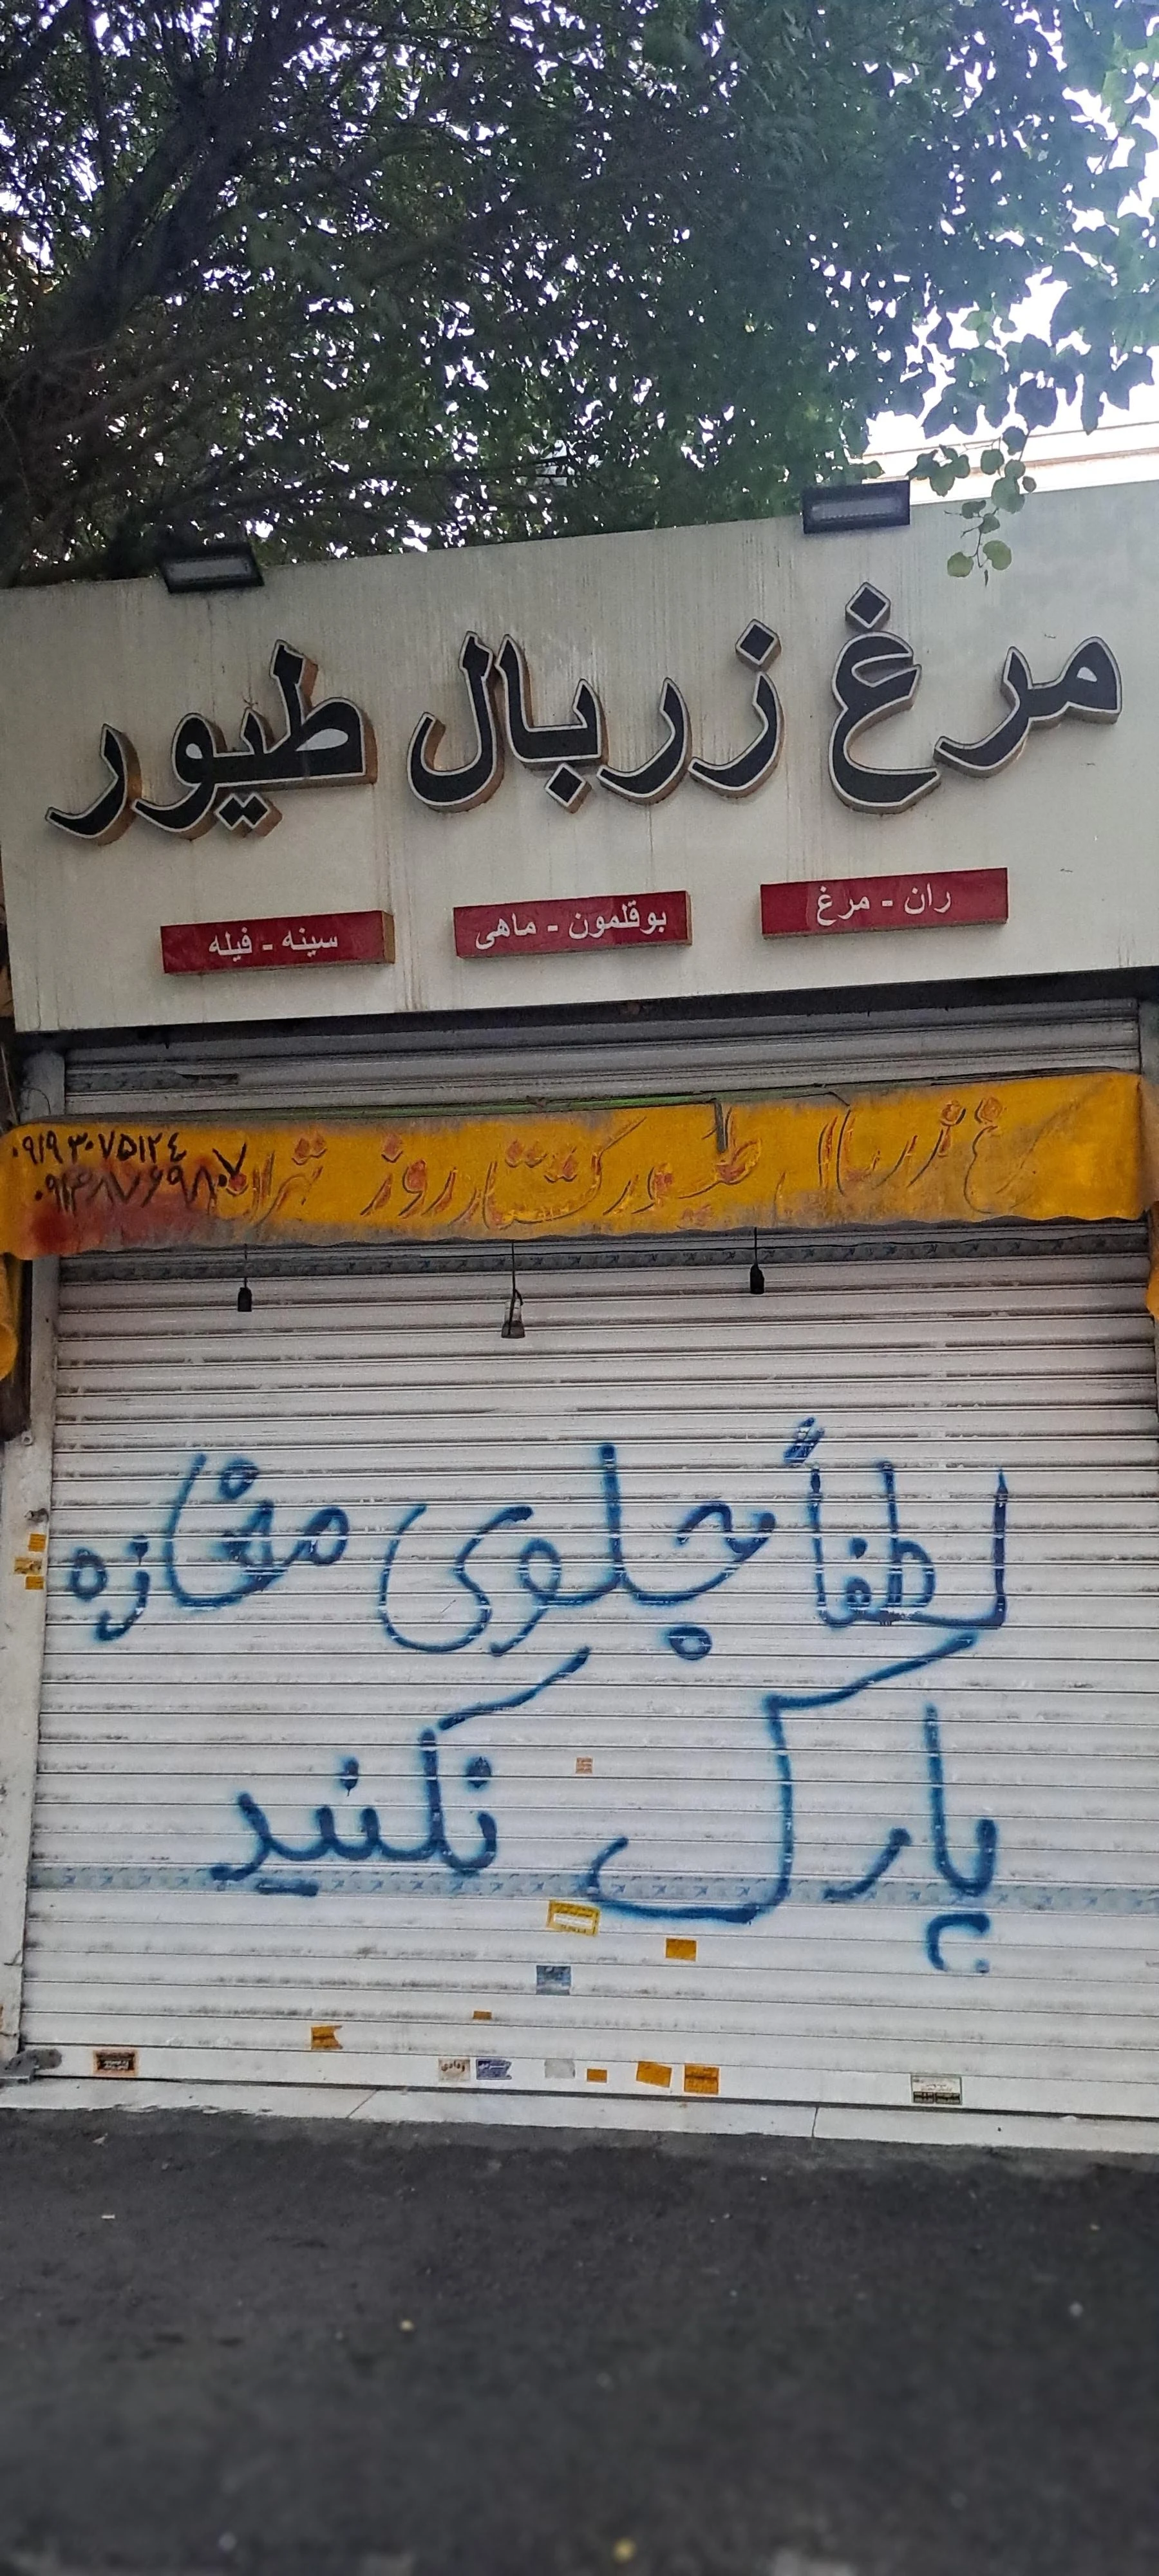 مرغ زربال طیور
ران - مرغ
بوقلمون - ماهی
سینه - فیله
زربال طیور کشتار روز تهران
۰۹۱۹۳۰۷۵۱۲٤
لطفاً جلوی مغازه
پارک نکنید